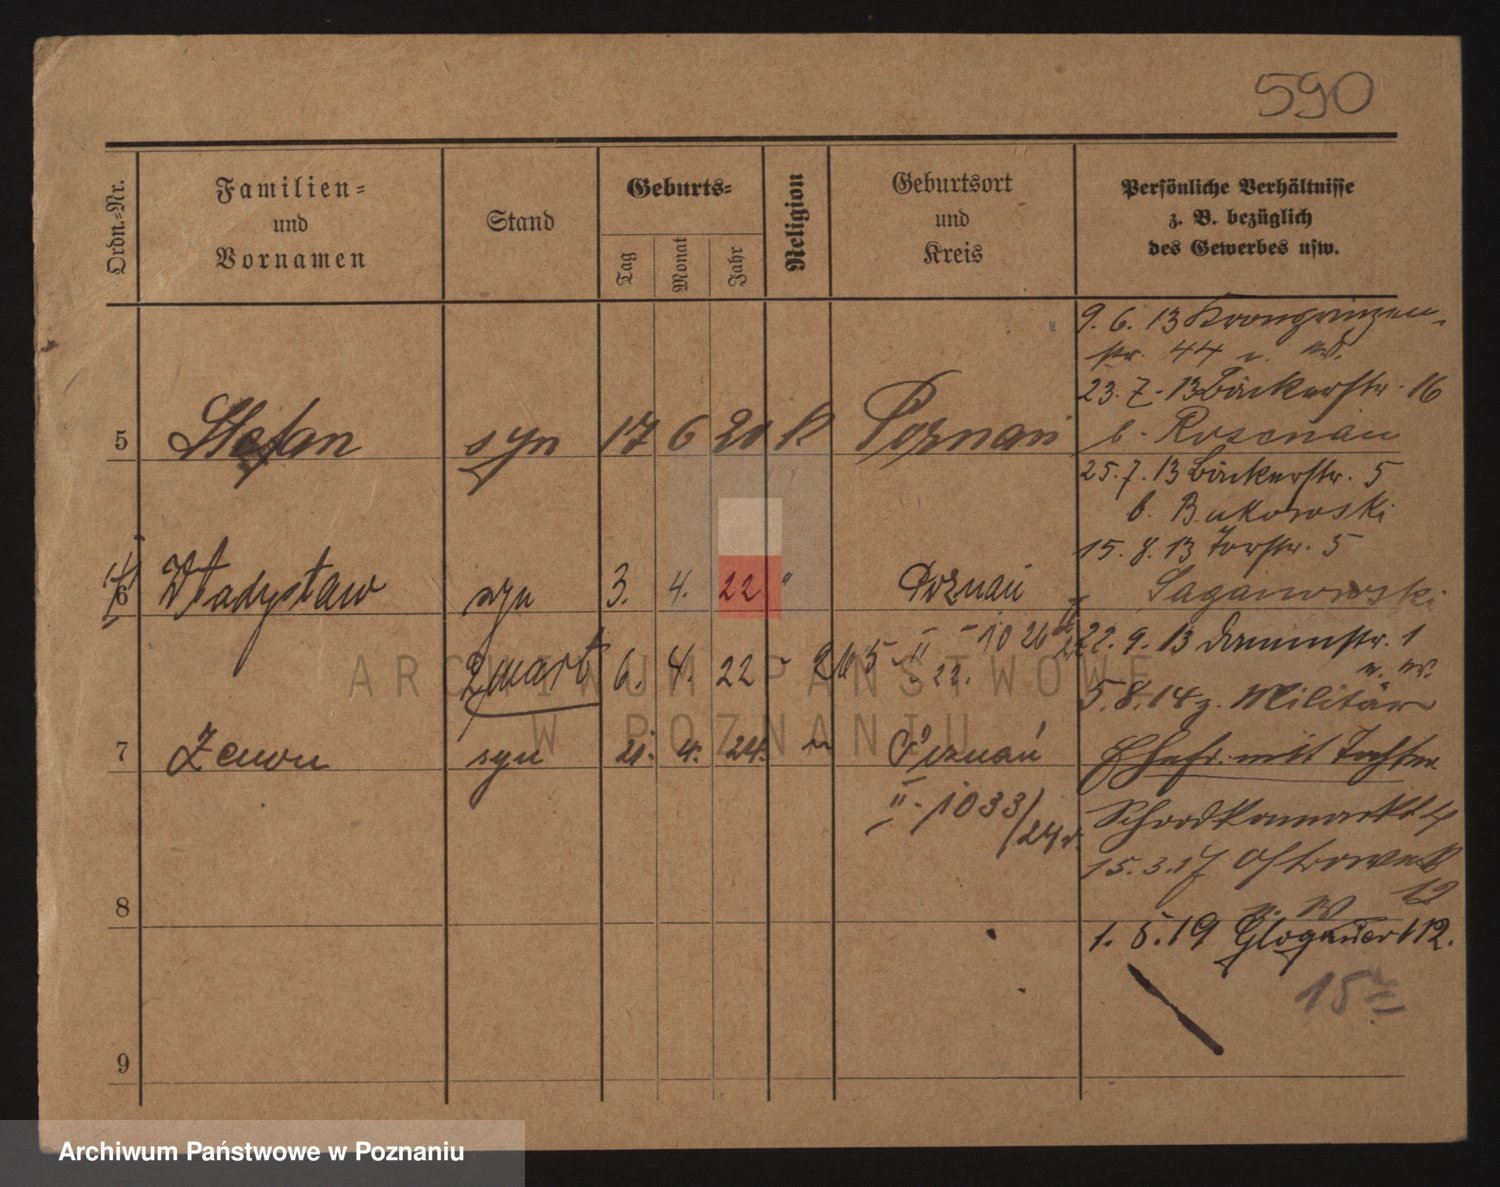 590
Ordn.-Nr.
Familien-
und
Vornamen
Stand
Geburts-
Tag
Monat
Jahr
Religion
Geburtsort
und
Kreis
Persönliche Verhältnisse
z. B. bezüglich
des Gewerbes usw.
5 Stefan syn 17 6 20 k Poznań
6 Władysław syn 3. 4. 22 " Poznań
zmarł 6. 4. 22
7 Zenon syn 21. 4. 24. " Poznań
II - 1033/24
8
9
9. 6. 13 Kronprinzen-
str. 44 u. W.
23. 7. 13 Bäckerstr. 16
b. Rosenau
25. 7. 13 Bäckerstr. 5
b. Bukowski
15. 8. 13 Torstr. 5
Saganowski
22. 9. 13 Dammstr. 1
u. W.
5. 8. 14 z. Militär
Ehefr. mit Tochter
15. 3. 17
1. 5. 19 Glogauer 112.
ARCHIWUM PAŃSTWOWE
W POZNANIU
Archiwum Państwowe w Poznaniu